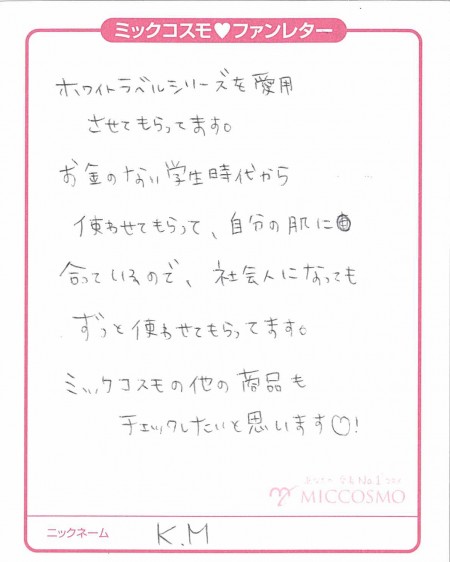 ミックコスモ♥ファンレター
ホワイトラベルシリーズを愛用
させてもらってます。
お金のない学生時代から
使わせてもらって、自分の肌に
合っているので、社会人になっても
ずっと使わせてもらってます。
ミックコスモの他の商品も
チェックしたいと思います♡!
No.1
MICCOSMO
ニックネーム K.M